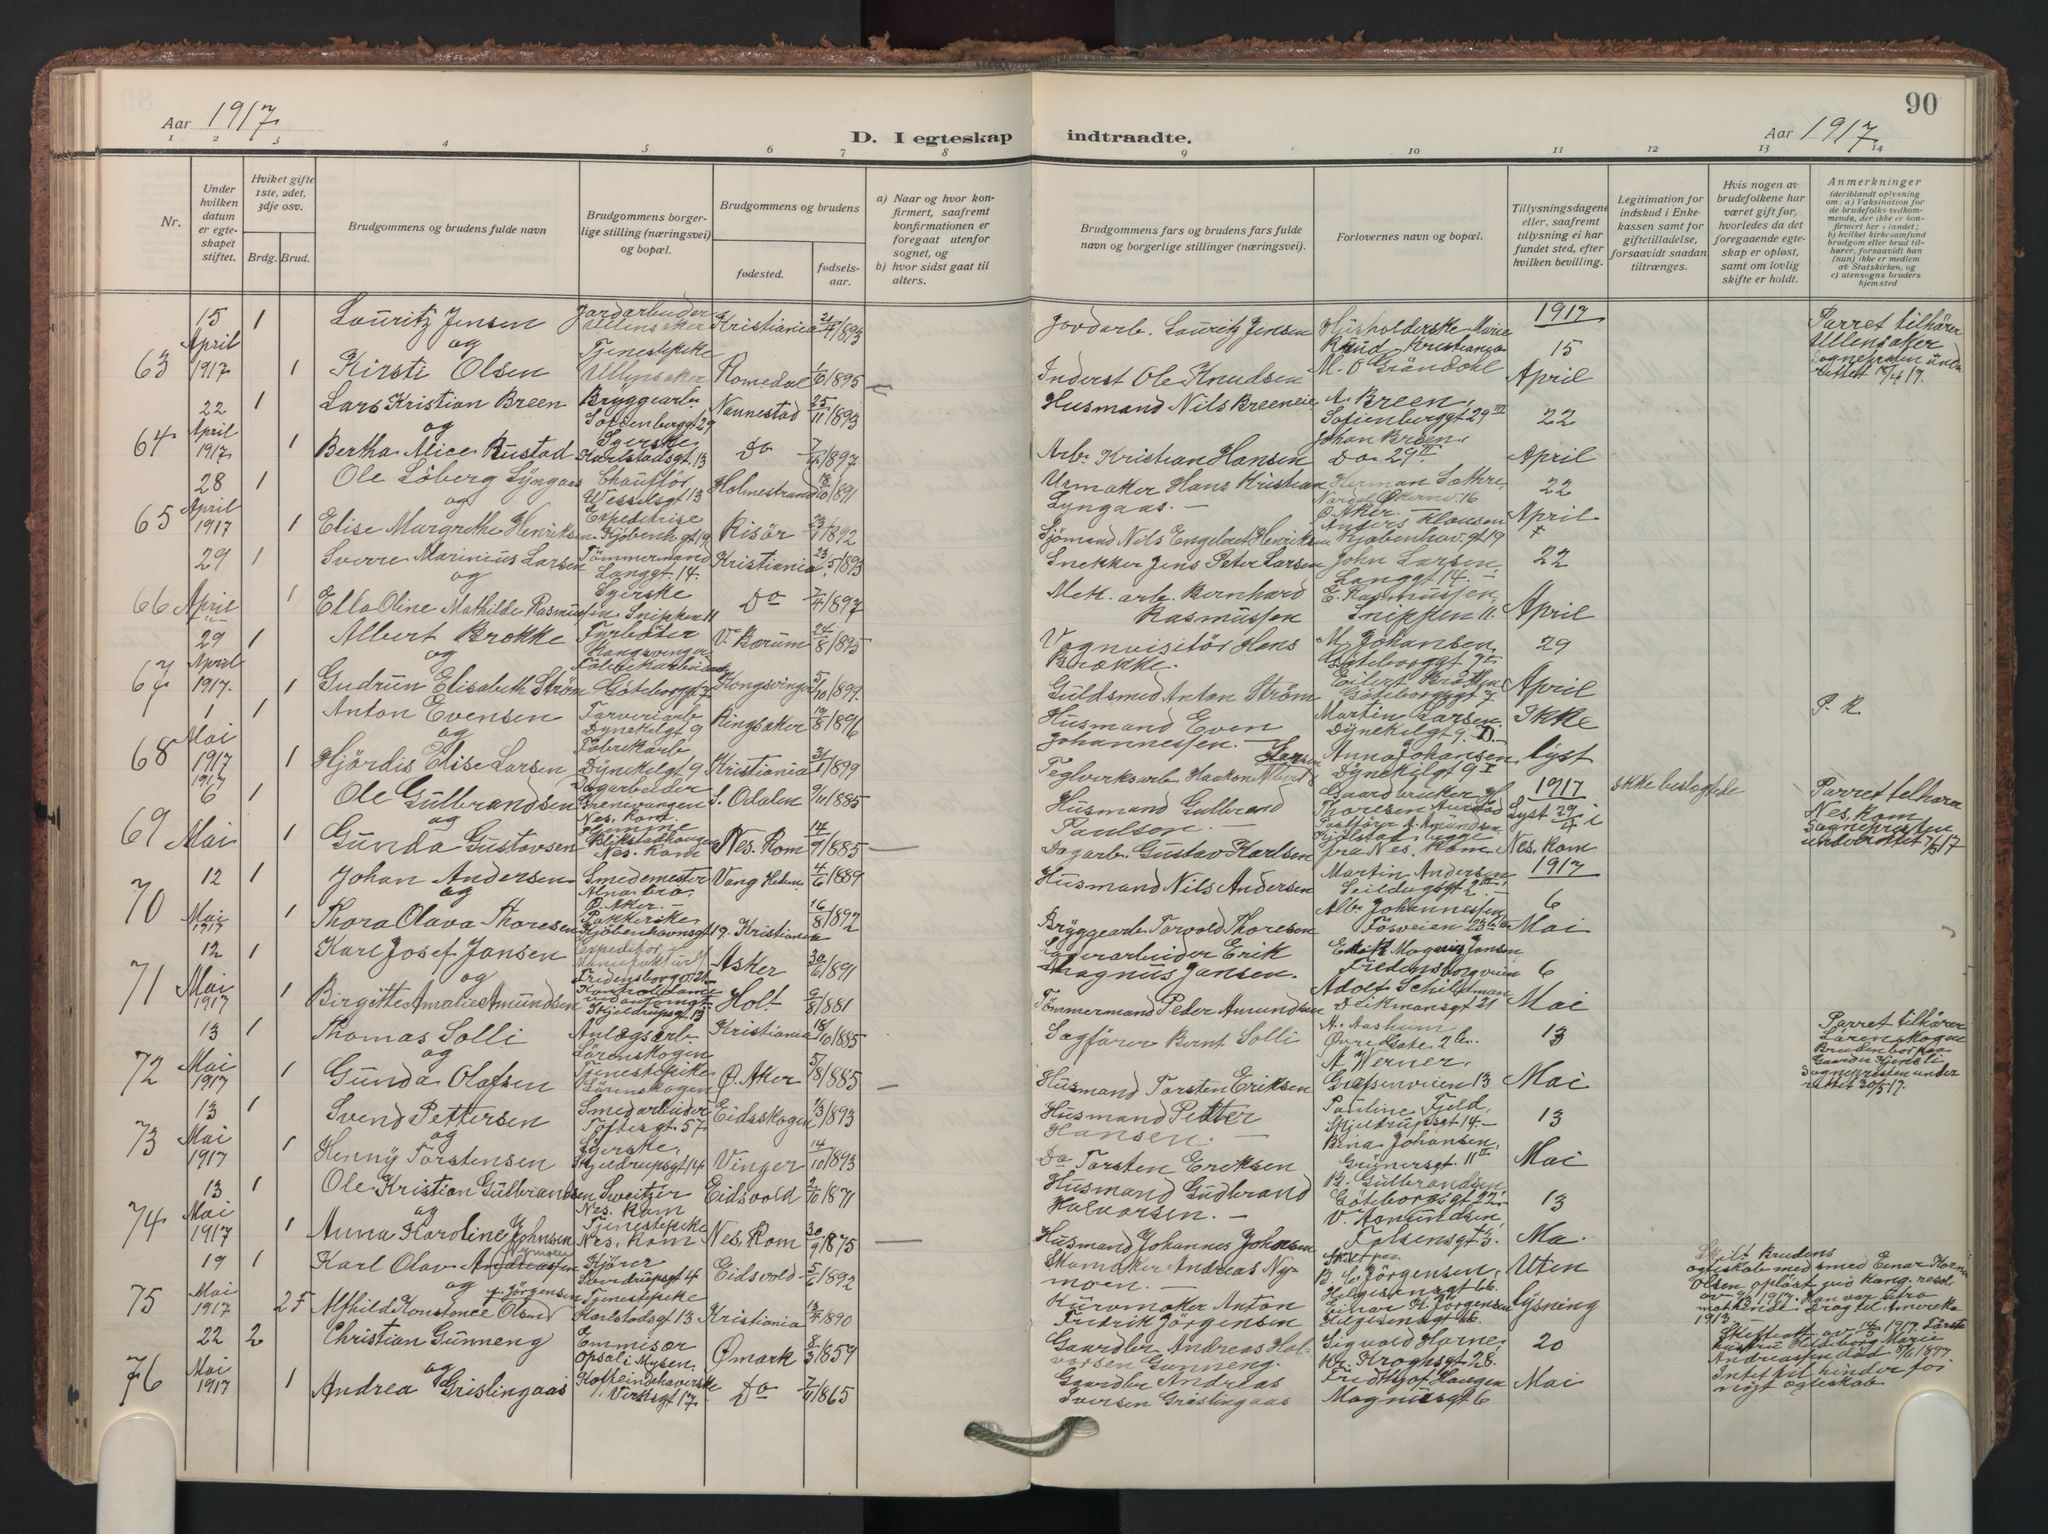 Aar 1917
D. I egteskap indtraadte.
Aar 1917
90
1 2 3 4 5 6 7 8 9 10 11 12 13 14
Nr.
Under hvilken datum er egteskapet stiftet.
Hviket gifte 1ste, 2det, 3dje osv.
Brdg. Brud.
Brudgommens og brudens fulde navn
Brudgommens borgerlige stilling (næringsvei) og bopæl.
Brudgommens og brudens
fødested.
fødselsaar.
a) Naar og hvor konfirmert, saafremt konfirmationen er foregaat utenfor sognet, og
b) hvor sidst gaat til alters.
Brudgommens fars og brudens fars fulde navn og borgerlige stillinger (næringsvei).
Forlovernes navn og bopæl.
Tillysningsdagene eller, saafremt tillysning ei har fundet sted, efter hvilken bevilling.
Legitimation for indskud i Enkekassen samt for giftetilladelse, forsaavidt saadan tiltrænges.
Hvis nogen av brudefolkene har været gift før, hvorledes da det foregaaende egteskap er opløst, samt om lovlig skifte er holdt.
Anmerkninger
(deriblandt oplysning om: a) Vaksination for de brudefolks vedkommende, der ikke er konfirmert her i landet; b) hvilket kirkesamfund brudgom eller brud tilhører, forsaavidt han (hun) ikke er medlem av Statskirken, og c) utensogns bruders hjemsted
63 15 April 1917 1 Lauritz Jensen Jordarbeider Ullensaker Kristiania 21/4 1893 Jordarb. Lauritz Jensen Husholderske Marie Knud Kristiania 1917 15 April
og
1 Kirsti Olsen Tjenestepike Ullensaker Romedal 1/6 1895 — Inderst Ole Knudsen M. O Gröndahl
Parret tilhører Ullensaker
64 22 April 1917 1 Lars Kristian Breen Bryggearb. Sofienberggt 29 Nannestad 25/11 1893 Husmand Nils Breeneie A. Breen, Sofienberggt 29 III 22 April
og
1 Bertha Alice Rustad Syerske Karlstadsgt. 13 Do 7/4 1897 Arb. Kristian Hansen Johan Breen, Do 29 II
65 28 April 1917 1 Ole Löberg Lyngaas Chauffør Wesselsgt 13 Holmestrand 18/10 1891 Urmaker Hans Kristian Lyngaas. — Herman Sathre Ø. Aker. — 22 April
og
1 Elise Margrethe Henriksen Expeditrise Kjöbenh. gt 19 Risör 23/1 1892 Sjömand Nils Engelbret Henriksen Anders Klausen Kjöbenhav. gt 19
66 29 April 1 Sverre Marinius Larsen Tømmermand Langgt. 14. Kristiania 23/5 1893 Snekker Jens Peter Larsen John Larsen, Langgt 14. — 22 April
og
1 Ella Oline Mathilde Rasmussen Syerske Snippen 11 Do 7/4 1897 Mek. arb. Bernhard Rasmussen E. Rasmussen, Snippen 11.
67 29 April 1917. 1 Albert Brække Fyrböter Kongsvinger V. Bærum 24/8 1895 Vognvisitör Hans Brække. M. Johansen, Göteborggt 7 29 April
og
1 Gudrun Elisabeth Ström Göteborggt 7 Kongsvinger 5/10 1899. Guldsmed Anton Ström Eilert Brække Göteborggt 7
68 1 Mai 1917 1 Anton Evensen Farveriarb Dynekilgt 9 Ringsaker 19/8 1896 Husmand Even Johannessen. — Martin Larsen. Dynekilgt 9. II — Ikke lyst P. K.
og
1 Hjördis Elise Larsen Fabrikarb Dynekilgt 9 Kristiania 31/1 1899 Teglverksarb Haakon Albert Larsen Anna Johansen, Dynekilgt 9 I
69 1917 6 Mai 1 Ole Gulbrandsen Dagarbeider Grenevangen Nes. Rom. S. Odalen 9/11 1885 Husmand Gulbrand Paulson. — Gaardbruker H. Thoresen Aurstad 1917 Lyst 29/4 i Nes. Rom ikke beslegtede Parret tilhører Nes. Rom
og
1 Gunda Gustavsen Hjemme Nes. Rom Nes. Rom 17/9 1885 — Dagarb. Gustav Karlsen Kjölstad, begge fra Nes. Rom.
70 12 Mai 1917 1 Johan Andersen Smedemester Alnabro Ø. Aker. — Vang Hedm. 4/6 1889 Husmand Nils Andersen Martin Andersen Seildugsgt. 2 III. — 1917 6 Mai
og
1 Thora Olava Thoresen Pakkerske Kjöbenhavnsgt 19. Kristiania 16/8 1892 Bryggearb Torvald Thoresen Alb. Johannessen
71 12 Mai 1917 1 Karl Josef Jansen Expeditör Fredensborgv. 21 Asker 30/6 1891 Lagerarbeider Erik Magnus Jansen. Erik Magnus Jansen Fredensborgveien 6 Mai
og
1 Birgitte Amalie Amundsen Kontroldame Skjeldrupsgt. 13 Holt. 9/8 1881 Tömmermand Peder Amundsen Adolf Schildman Deikmansgt 21
72 13 Mai 1917 1 Thomas Solli Anlægsarb. Lörenskogen Kristiania 18/10 1885 Sagförer Bernt Solli A. Aasheim Øvredgate 26. 13 Mai
og
1 Gunda Olafsen Tjenestepike Lörenskogen Ø. Aker 5/8 1885 — Husmand Torsten Eriksen A. Werner, Grefsenveien 13
Parret tilhører Lörenskogen
73 13 Mai 1917 1 Svend Pettersen Smedarbeider Toftesgt. 57. Eidsskogen 1/3 1893 Husmand Petter Hansen. — Pauline Fjeld, Skjeldrupsgt 14 — 13 Mai
og
1 Henny Torstensen Syerske, Skjeldrupsgt 14 Vinger 14/10 1893 Do Torsten Eriksen Bina Johansen, Grünersgt. 11 II
74 13 Mai 1917 1 Ole Kristian Gulbrandsen Sveitzer Nes. Rom Eidsvold 2/10 1871 Husmand Gudbrand Halvorsen. — B. Gulbrandsen Göteborggt 22. 13 Ma.
og
1 Anna Karoline Johnsen Tjenestepike Nes. Rom Nes. Rom 30/9 1875 — Husmand Johannes Johnsen V. Amundsen, Falsensgt 3.
75 19 Mai 1917 1 Karl Olav Andreassen Nymoen Kjörer Skovdrupsgt 4 Eidsvold 5/6 1892 Skomaker Andreas Nymoen. — B. C. Jörgensen, Helgesensgt 66. Uten lysning
og
2 F Alfhild Konstance Olsen f. Jörgensen Tjenestepike Karlstadsgt 13 Kristiania 13/4 1890 Kurvmaker Anton Fredrik Jörgensen Einar H. Jörgensen Helgesensgt 66.
Skilt Brudens egteskab med smed Einar Olsen opløst ved kong. resol av 9/5 1917. Amerika 1913.
76 22 Mai 1917 2 Christian Gunneng Emmisær Opsal i Mysen. Ømark 8/3 1859 Gaardbr Andreas Halvorsen Gunneng. Sigvald Harne, Kr. Kroghsgt 28. 20 Mai
og
1 Andrea Grislingaas Kaffeindhaverske Verksgt 17 Do 7/11 1865 Gaardbr Andreas Iversen Grislingaas Fridthjof Haugen Magnusgt 6
Skifteatt av 14/5 1917. Første hustru Hedeborg Marie Andreassen död 8/1 1897 Intet til hinder for nyt egteskab